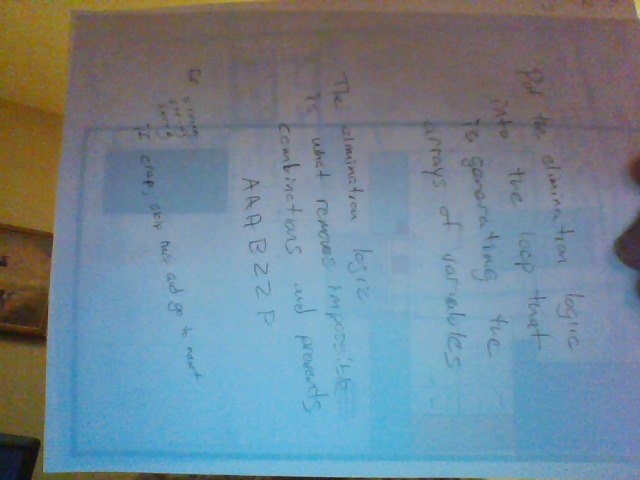 Put the elimination logic
into the loop that
is generating the
arrays of variables
The elimination logic
is what removes impossible
combinations and prevents
AAABZZP
is crap, skip this and go to next